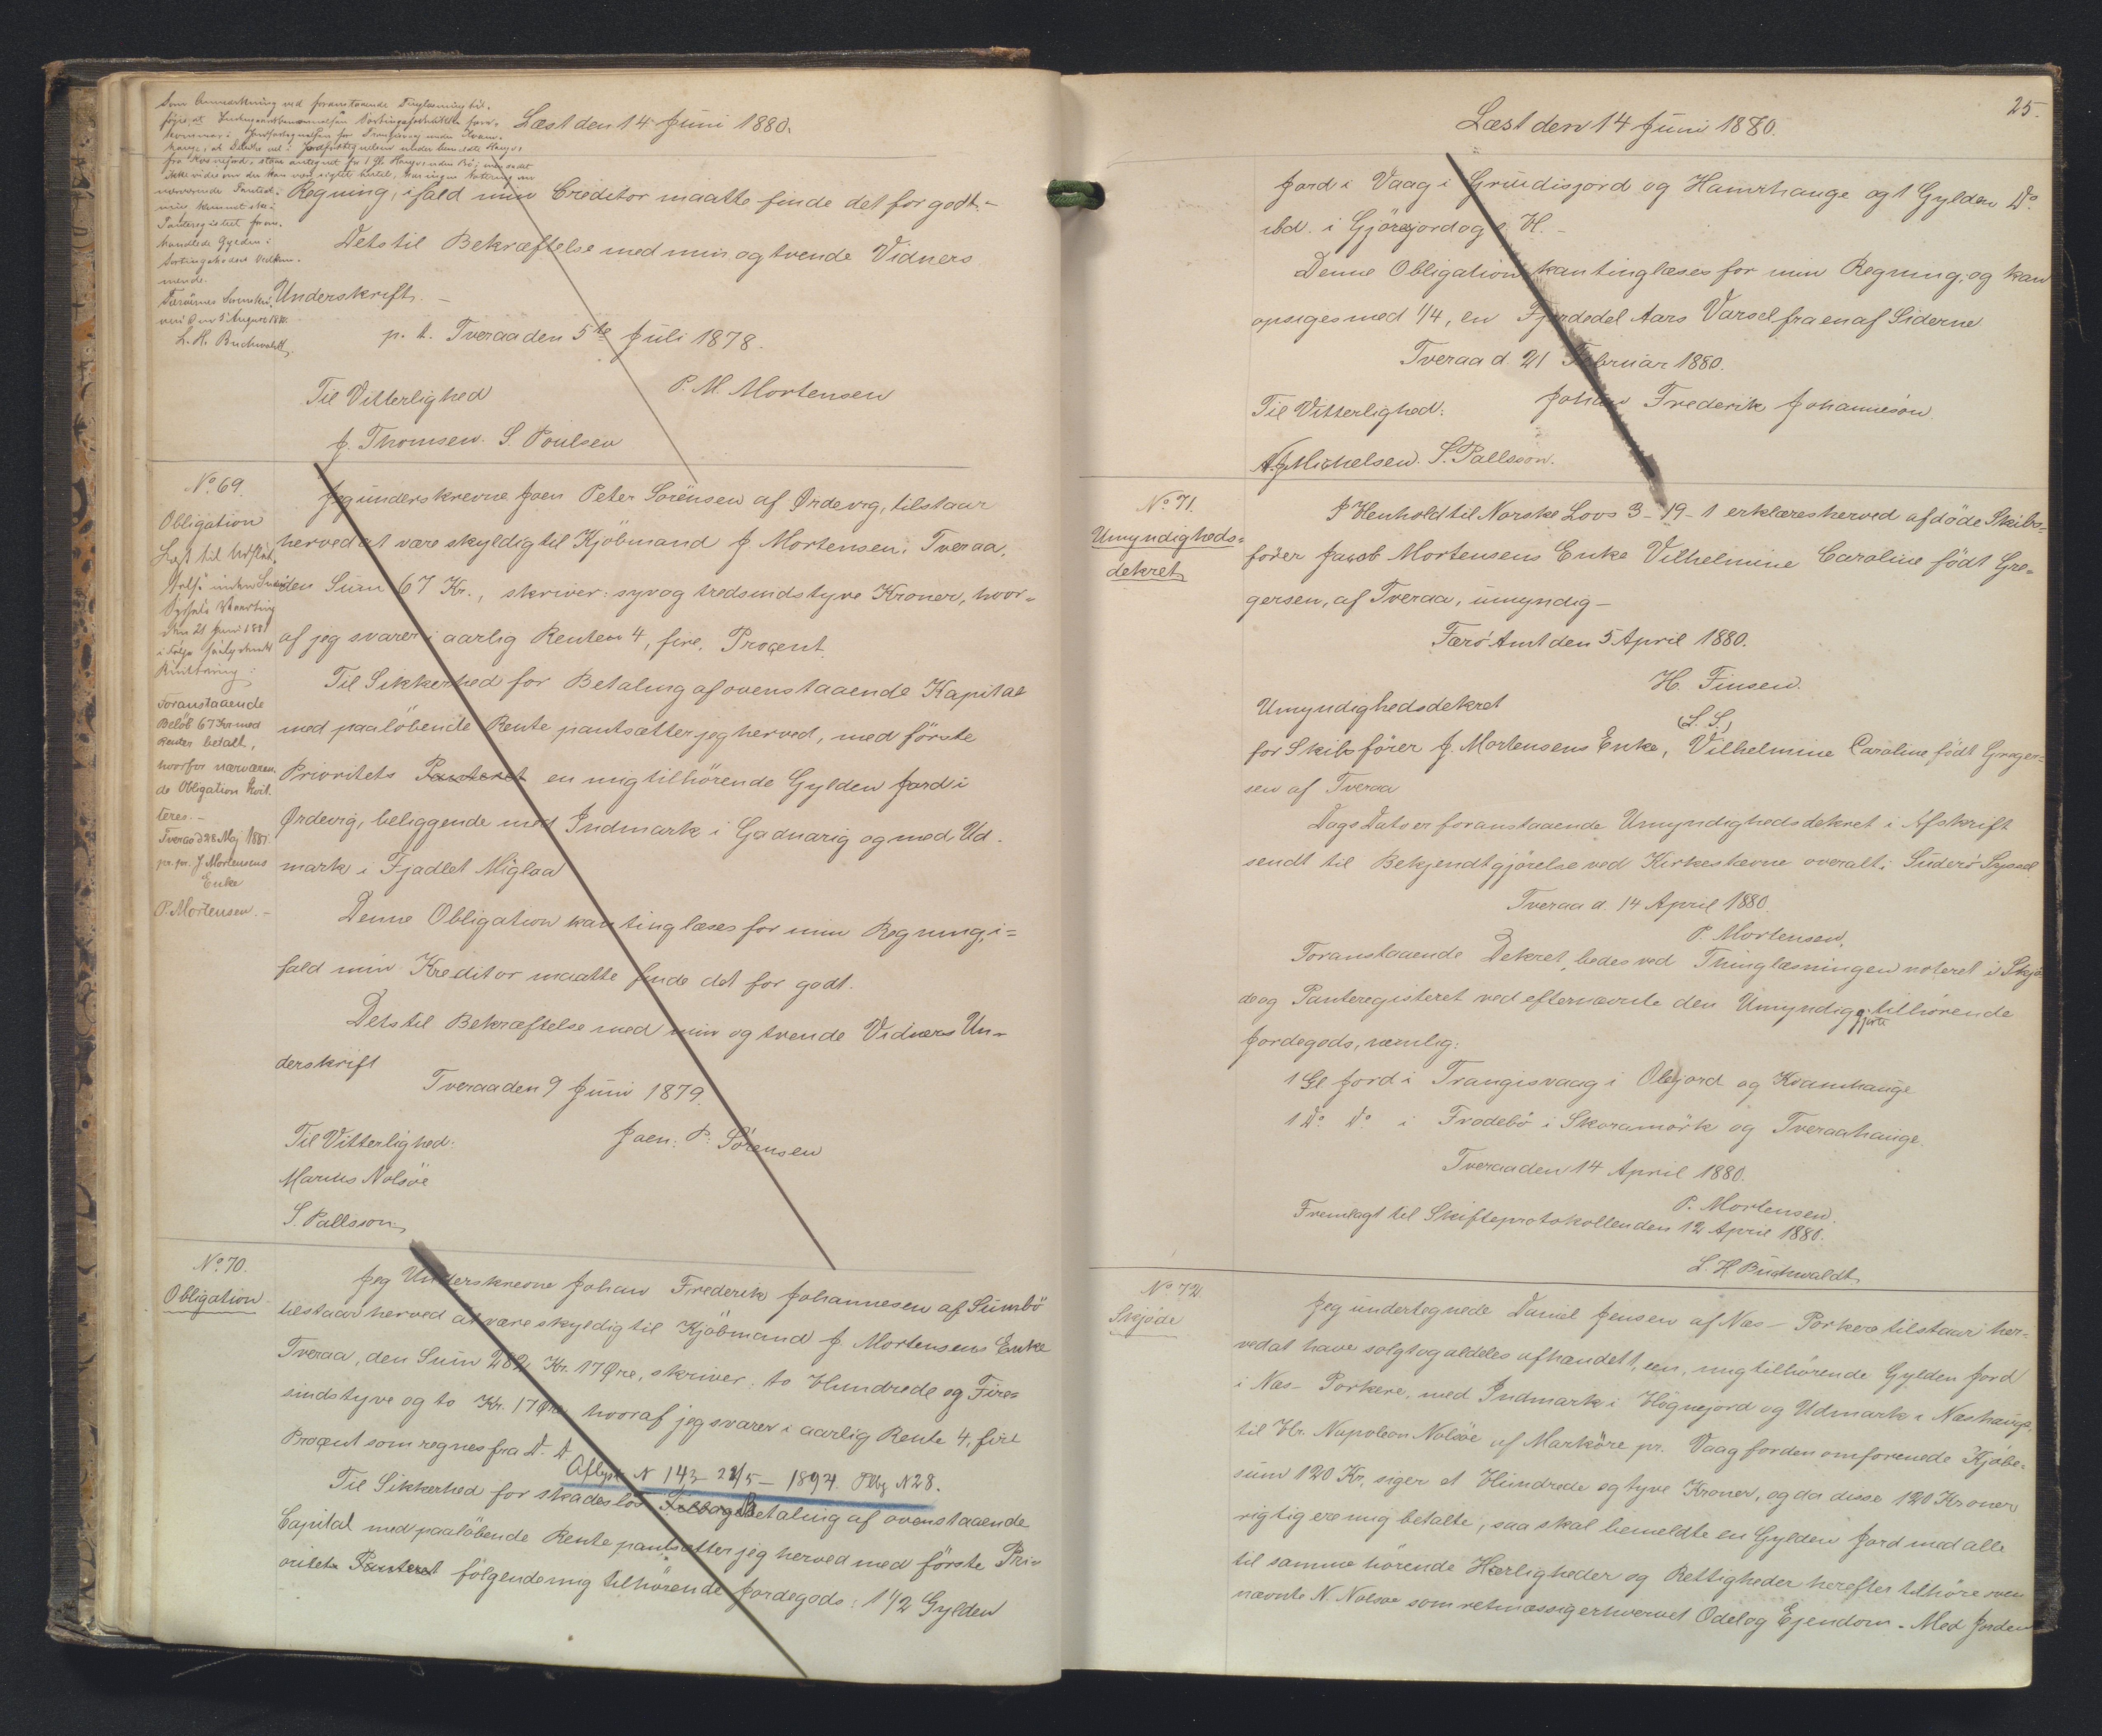 Læst den 14 Juni 1880.
Som Anmærkning ved foranstaaende Tinglæsning til-
føies, at
Færøernes Sorenskri-
veri d. 5 August 1880.
L. H. Buchwaldt
Regning, ifald min Creditor maatte finde det for godt.-
Dets til Bekræftelse med min og tvende Vidners
Underskrift. -
p. t. Tveraa den 5te Juli 1878.
P. M. Mortensen
Til Vitterlighed
J. Thomsen. S. Poulsen
No. 69.
Obligation
Læst til Udslet-
telse
den 21 Juni 1881
Kvittering:
Foranstaaende
Beløb 67 Kr med
Renter betalt,
hvorfor nærværen-
de Obligation kvit-
teres. -
Tveraa d 28 Maj 1881.
pr. pr. J. Mortensens
Enke
P. Mortensen. -
Jeg underskrevne Joen Peter Sørensen af Ørdevig, tilstaar
herved at være skyldig til Kjöbmand J. Mortensen, Tveraa,
den Sum 67 Kr., skriver: syv og tredsindstyve Kroner, hvor-
af jeg svarer i aarlig Renten 4, fire, Procent.
Til Sikkerhed for Betaling af ovenstaaende Kapital
med paalöbende Rente pantsætter jeg herved, med förste
Prioritets Panteret en mig tilhörende Gylden Jord i
Ørdevig, beliggende med Indmark i Gadnarig og med Ud-
mark i Fjadlet Miglaa
Denne Obligation kan tinglæses for min Regning, i=
fald min Kreditor maatte finde det for godt.
Dets til Bekræftelse med min og tvende Vidners Un-
derskrift
Tveraa den 9 Juni 1879.
Joen. P. Sørensen
Til Vitterlighed:
Marius Nolsöe
S. Pallsson.
No. 70.
Obligation
Jeg Underskrevne Johan Frederik Johannesen af Sumbö
tilstaar herved at være skyldig til Kjöbmand J. Mortensens Enke
Tveraa, den Sum 282 Kr. 17 Øre, skriver: to Hundrede og Fire=
sindstyve og to Kr. 17 Øre hvoraf jeg svarer i aarlig Rente 4, fire
Procent som regnes fra D. D.
Aflyst N 143 - 21/5 - 1894. Tlbg N 28.
Til Sikkerhed for skadeslös Tilbage Betaling af ovenstaaende
Capital med paalöbende Rente pantsætter jeg herved med förste Pri-
oritets Panteret fölgende mig tilhörende Jordegods: 1 1/2 Gylden
25.
Læst den 14 Juni 1880.
Jord i Vaag i Grundisjord og Hamrhauge og 1 Gylden Do.
ibd. i Gjörejord og H. -
Denne Obligation kan tinglæses for min Regning, og kan
opsiges med 1/4, en Fjerdedel Aars Varsel fra en af Siderne
Tveraa d. 21 Februar 1880.
Johan Frederik Johannesen.
Til Vitterlighed:
A. J. Michelsen. S. Pallsson.
No. 71.
Umyndigheds=
dekret
I Henhold til Norske Lovs 3-19-1 erklæres herved afdöde Skibs-
förer Jacob Mortensens Enke Vilhelmine Caroline födt Gre-
gersen, af Tveraa, umyndig -
Færö Amt den 5 April 1880.
H. Finsen.
(L. S.)
Umyndighedsdekret
for Skibsförer J. Mortensens Enke, Vilhelmine Caroline födt Greger-
sen af Tveraa
Dags Dato er foranstaaende Umyndighedsdekret i Afskrift
sendt til Bekjendtgjörelse ved Kirkestævne overalt i Suderö Syssel
Tveraa d. 14 April 1880.
P. Mortensen.
Foranstaaende Dekret bedes ved Thinglæsningen noteret i Skjö
de og Panteregisteret ved efternævnte den Umyndiggjorte tilhörende
Jordegods, nemlig:
1 Gl Jord i Trangisvaag i Olejord og Kvamhauge
1 Do. Do. i Frodebö i Skoramörk og Tveraahauge.
Tveraa den 14 April 1880.
P. Mortensen.
Fremlagt til Skifteprotokollen den 12 April 1880.
L. H. Buchwaldt
No. 72.
Skjöde
Jeg undertegnede Daniel Jensen af Næs - Porkere tilstaar her-
ved at have solgt og aldeles afhændet 1, een, mig tilhörende Gylden Jord
i Næs - Porkere, med Indmark i Högnejord og Udmark i Næshauge,
til Hr. Napoleon Nolsöe af Marköre pr. Vaag for den omforenede Kjöbe-
sum 120 Kr, siger et Hundrede og tyve Kroner, og da disse 120 Kroner
rigtig ere mig betalte, saa skal bemeldte en Gylden Jord med alle
til samme hörende Herligheder og Rettigheder herefter tilhöre oven
nævnte N. Nolsöe som retmæssig erhvervet Odel og Ejendom. - Med Jorden